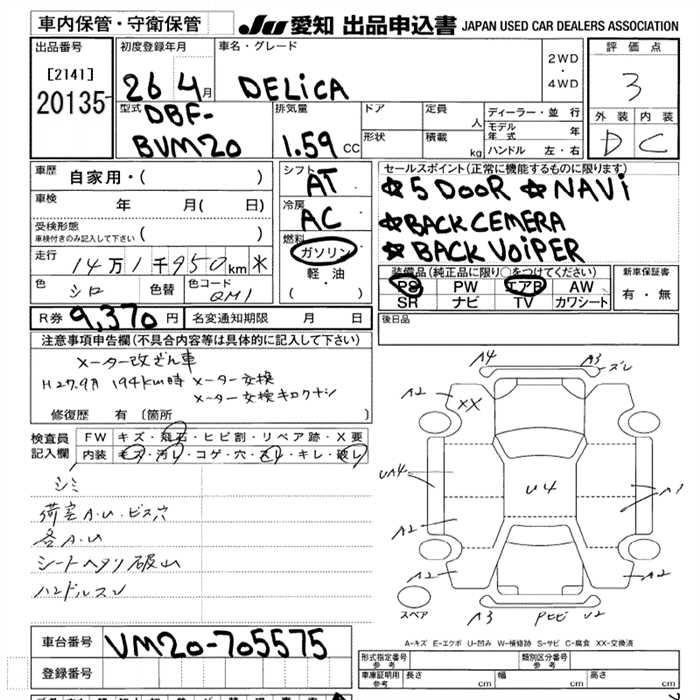 車内保管・守衛保管
JU 愛知 出品申込書 JAPAN USED CAR DEALERS ASSOCIATION
出品番号
[2141]
20135-
初度登録年月
26 4月
車名・グレード
DELICA
2WD
・
4WD
評価点
3
外装 内装
D C
型式
DBF-
BVM20
排気量
1.59 CC
ドア
形状
定員
人
積載
kg
ディーラー・並 行
モデル年式 年
ハンドル 左・右
車歴
自家用・( )
車検
年 月( 日)
受検形態
車検付きのみ記入して下さい ( )
走行
14万1千950km *
色 シロ 色替 色コード QM1
シフト
AT
冷房
AC
燃料
ガソリン
軽・油
( ・ )
セールスポイント(正常に機能するものに限ります)
☆ 5 DOOR ☆ NAVi
☆BACK CEMERA
☆ BACK VOiPER
装備品(純正品に限り○をつけてください)
PS PW エアB AW
SR ナビ TV カワシート
新車保証書
有・無
R券 9,370 円 名変通知期限 月 日
後日品
注意事項申告欄(不具合内容等は具体的に記入して下さい)
メーター改ざん車
H27.9月 194km時 メーター交換
メーター交換キロクナシ
修復歴 有 〔箇所 〕
検査員
記入欄
FW キズ・飛石・ヒビ割・リペア跡・X要
内装 キズ・汚レ・コゲ・穴・スレ・キレ・破レ
シミ
荷室A.U.ビス穴
各A.U
シートヘタリ破山
ハンドルスレ
A4 A3 ズレ
A2 XX
UA4 U4 A1
A2 A2
A2 A2
スペア A3 PヒビU2
A-キズ E-エクボ U-凹み W-補修跡 S-サビ C-腐食 XX-交換済
車台番号 VM20-705575
登録番号
形式指定番号
参考
類別区分番号
参考
車庫証明用
参考
長さ cm 幅 cm 高さ cm